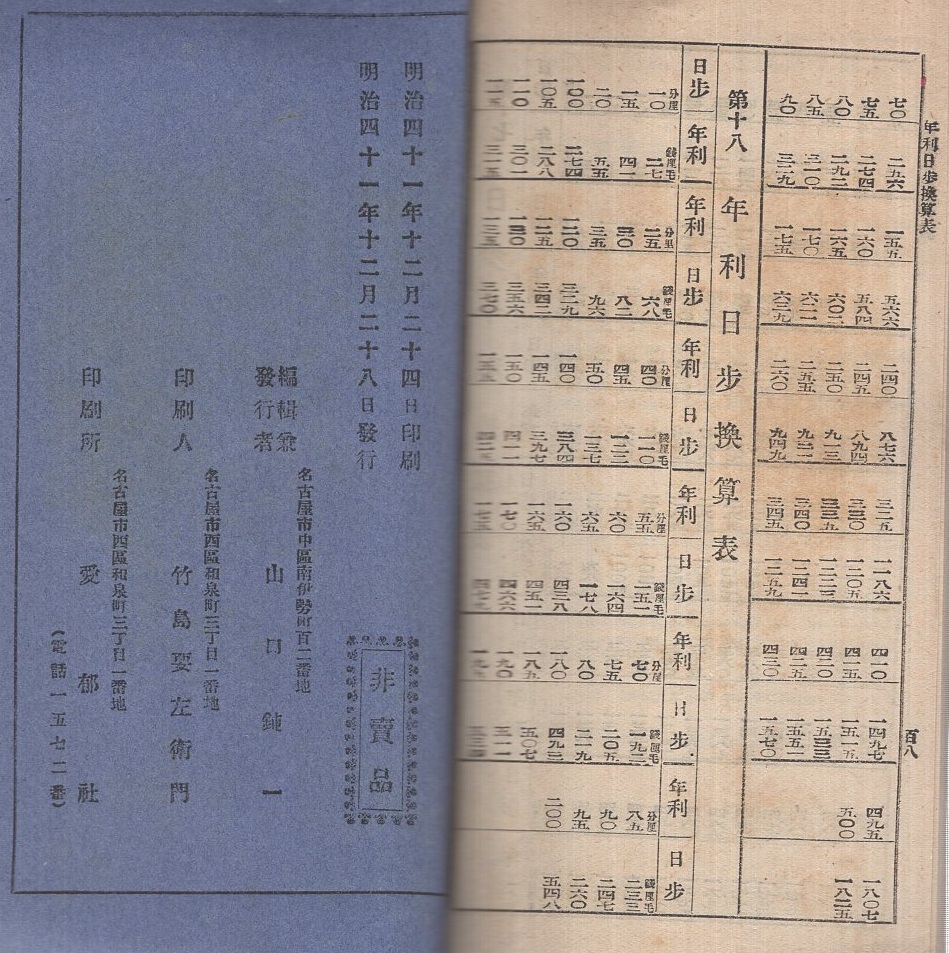 年利日歩換算表 百八
七〇 二五六 一五五 五六六 二四〇 八七六 三二五 一一八六 四一〇 一四九七 四九五 一八〇七
七五 二七四 一六〇 五八四 二四五 八九四 三三〇 一二〇五 四一五 一五一五 五〇〇 一八二五
八〇 二九二 一六五 六〇二 二五〇 九一三 三三五 一二二三 四二〇 一五三三
八五 三一〇 一七〇 六二一 二五五 九三一 三四〇 一二四一 四二五 一五五一
九〇 三二九 一七五 六三九 二六〇 九四九 三四五 一二五九 四三〇 一五七〇
第十八 年利日歩換算表
日歩 年利 年利 日歩 年利 日歩 年利 日歩 年利 日歩 年利 日歩
分厘 錢厘毛 分厘 錢厘毛 分厘 錢厘毛 分厘 錢厘毛 分厘 錢厘毛 分厘 錢厘毛
一〇 二七 二五 六八 四〇 一一〇 五五 一五一 七〇 一九二 八五 二三三
一五 四一 三〇 八二 四五 一二三 六〇 一六四 七五 二〇五 九〇 二四七
二〇 五五 三五 九六 五〇 一三七 六五 一七八 八〇 二一九 九五 二六〇
一〇〇 二七四 一二〇 三二九 一四〇 三八四 一六〇 四三八 一八〇 四九三 二〇〇 五四八
一〇五 二八八 一二五 三四二 一四五 三九七 一六五 四五二 一八五 五〇七
一一〇 三〇一 一三〇 三五六 一五〇 四一一 一七〇 四六六 一九〇
一一五 三一五 一三五 三七〇
明治四十一年十二月二十四日印刷
明治四十一年十二月二十八日發行
非賣品
編輯兼
發行者
名古屋市中區南伊勢町百二番地
山口鈍一
印刷人
名古屋市西區和泉町三丁目一番地
竹島要左衛門
印刷所
名古屋市西區和泉町三丁目一番地
愛郁社
(電話一五七二番)